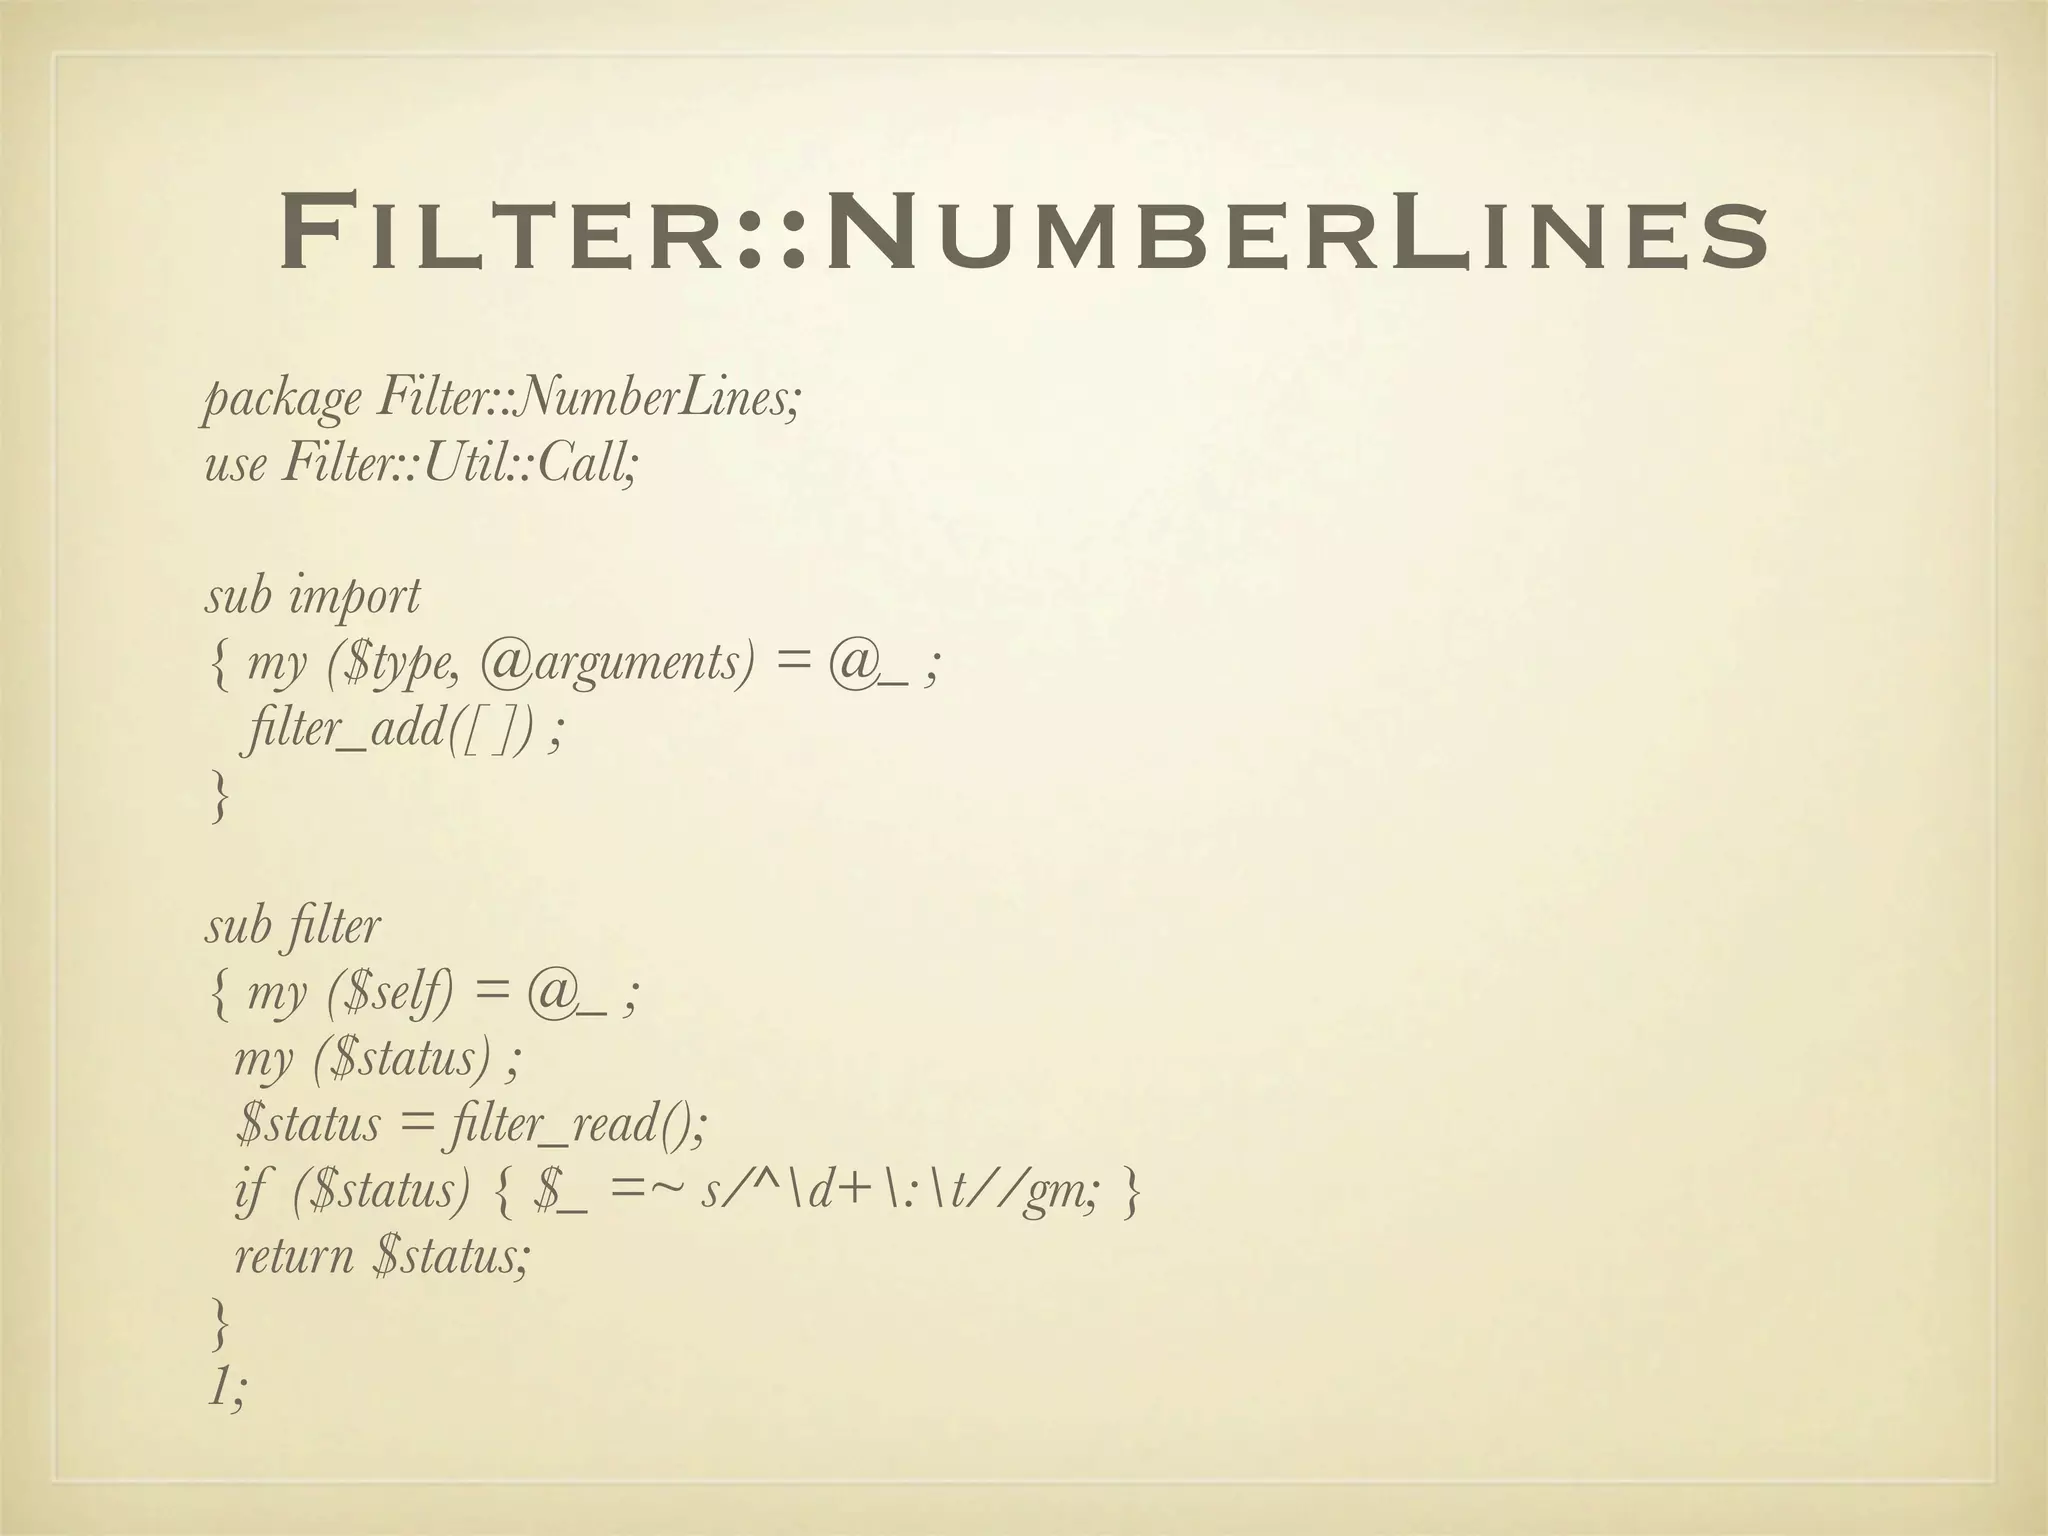 Filter::NumberLines
package Filter::NumberLines;
use Filter::Util::Call;
sub import
{ my ($type, @arguments) = @_ ;
filter_add([ ]) ;
}
sub filter
{ my ($self) = @_ ;
my ($status) ;
$status = filter_read();
if ($status) { $_ =~ s/^\d+\:\t//gm; }
return $status;
}
1;